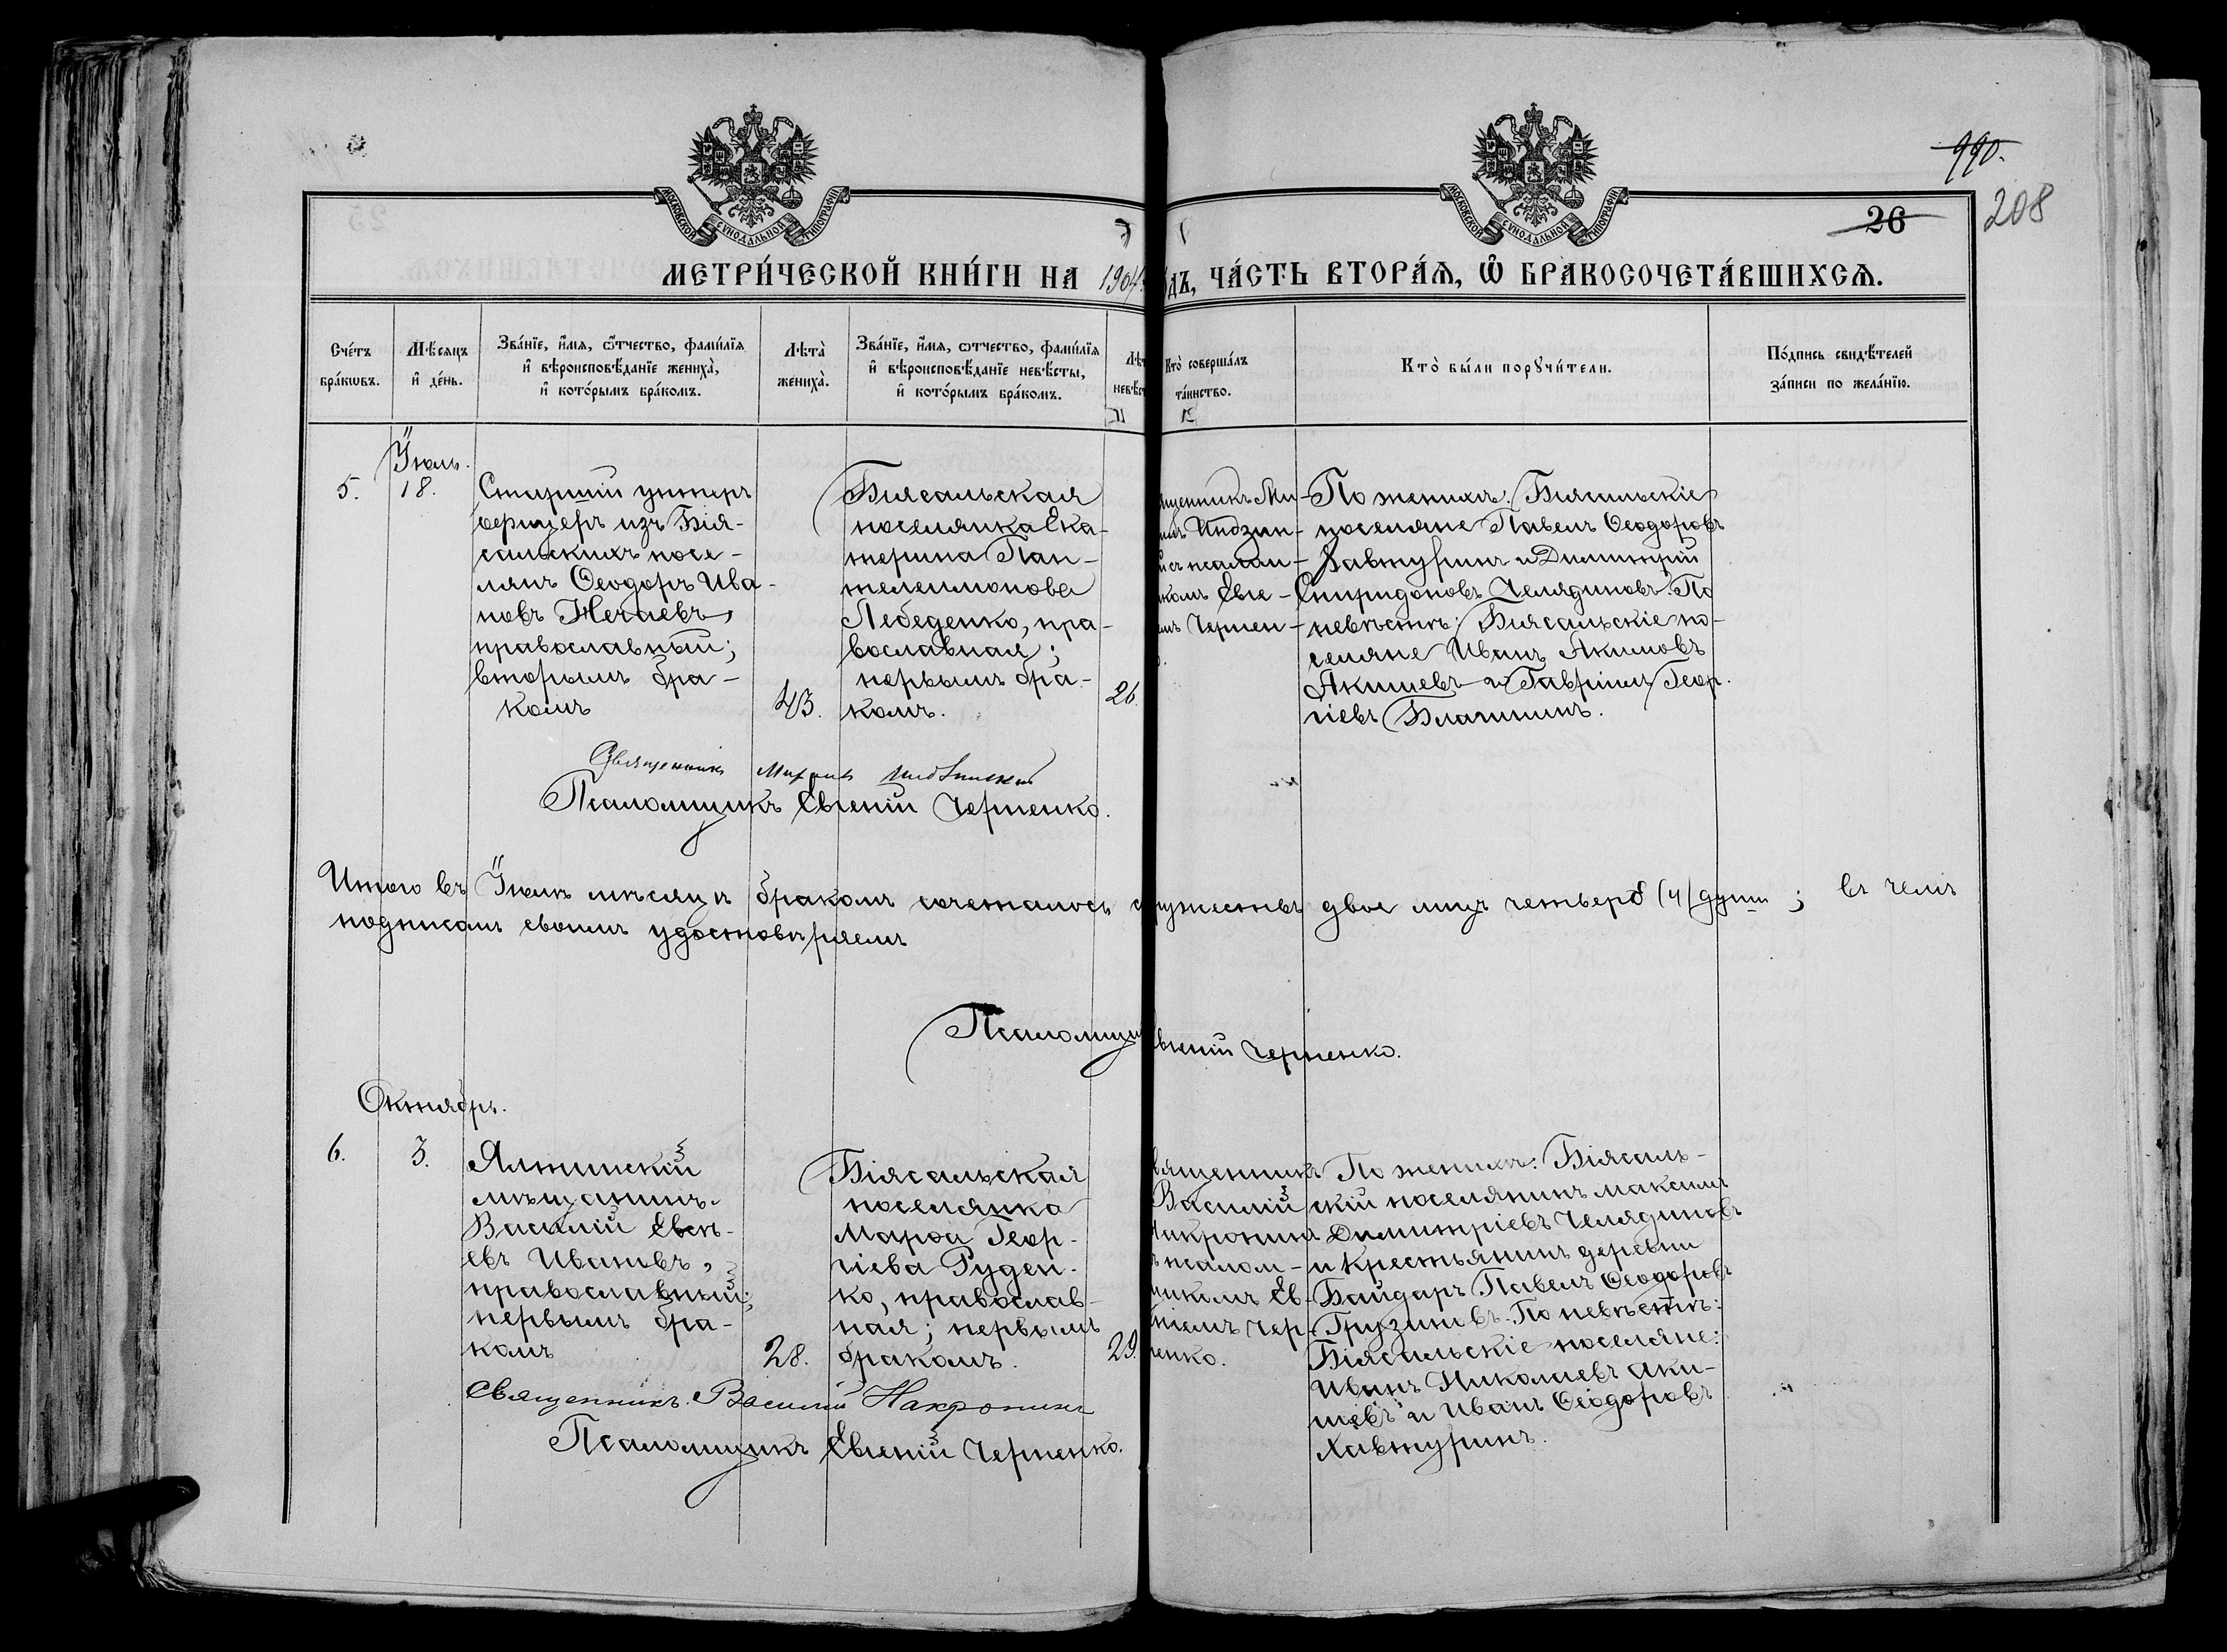 990.
208
26
МОСКОВСКОЙ СѴНОДАЛЬНОЙ ТИПОГРАФІИ
МОСКОВСКОЙ СѴНОДАЛЬНОЙ ТИПОГРАФІИ
МЕТРИ́ЧЕСКОЙ КНИ́ГИ НА 1904
ДЪ, ЧА́СТЬ ВТОРА́Ѧ, Ѽ БРАКОСОЧЕТА́ВШИХСѦ.
Сче́тъ бра́кѡвъ.
Мѣ́сяцъ и҆ де́нь.
Зва́нїе, и҆́мя, ѻ҆́тчество, фами́лїя
и҆ вѣроисповѣ́данїе жениха̀,
и҆ кото́рымъ бра́комъ.
Лѣта̀ жениха̀.
Зва́нїе, и҆́мя, ѻтчество, фами́лїя
и҆ вѣроисповѣ́данїе невѣ́сты,
и҆ кото́рымъ бра́комъ.
Лѣт
невѣс
Кто̀ соверша́лъ
та́инство.
Кто̀ бы́ли порꙋчи́тели.
По́дпись свидѣ́телей
за́писи по жела́нїю.
Іюль.
5.
18.
Старшій унтеръ
офицеръ изъ Бія-
сальскихъ посе-
лянъ Ѳеодоръ Ива-
новъ Нечаевъ,
православный;
вторымъ бра-
комъ
43.
Біясальская
поселянка Ека-
терина Пан-
телеимонова
Лебеденко, пра-
вославная;
первымъ бра-
комъ.
26.
ященникъ Ми-
Индзин-
псалом-
комъ Евге-
емъ Черпен-
По женихѣ: Біясальскіе
поселяне Павелъ Ѳеодоровъ
Хавтуринъ и Димитрій
Спиридоновъ Челядиновъ. По
невѣстѣ: Біясальскіе по-
селяне Иванъ Акимовъ
Акишевъ и Гавріилъ Геор-
гіевъ Влашинъ.
Священникъ
Псаломщикъ Евгеній Черпенко.
Итого въ Іюлѣ мѣсяцѣ бракомъ сочеталось супружествъ двое лицъ четверо (4) души; въ чемъ
подписомъ своимъ удостовѣряемъ
Псаломщи
вгеній Черпенко.
Октябрь.
6.
3.
Ялтинскій
мѣщанинъ
Василій Евсѣ-
евъ Ивановъ,
православный;
первымъ бра-
комъ
28.
Біясальская
поселянка
Марѳа Геор-
гіева Руден-
ко, православ-
ная; первымъ
бракомъ.
29.
вященникъ
Василій
Накропинъ
псалом-
щикомъ Ев-
ніемъ Чер-
пенко.
По женихѣ: Біясаль-
скій поселянинъ Максимъ
Димитріевъ Челядиновъ
и крестьянинъ деревни
Байдаръ Павелъ Ѳеодоровъ
Грузиновъ. По невѣстѣ:
Біясальскіе поселяне:
Иванъ Николаевъ Аки-
шевъ и Иванъ Ѳеодоровъ
Хавтуринъ.
Священникъ Василій Накропинъ
Псаломщикъ Евгеній Черпенко.